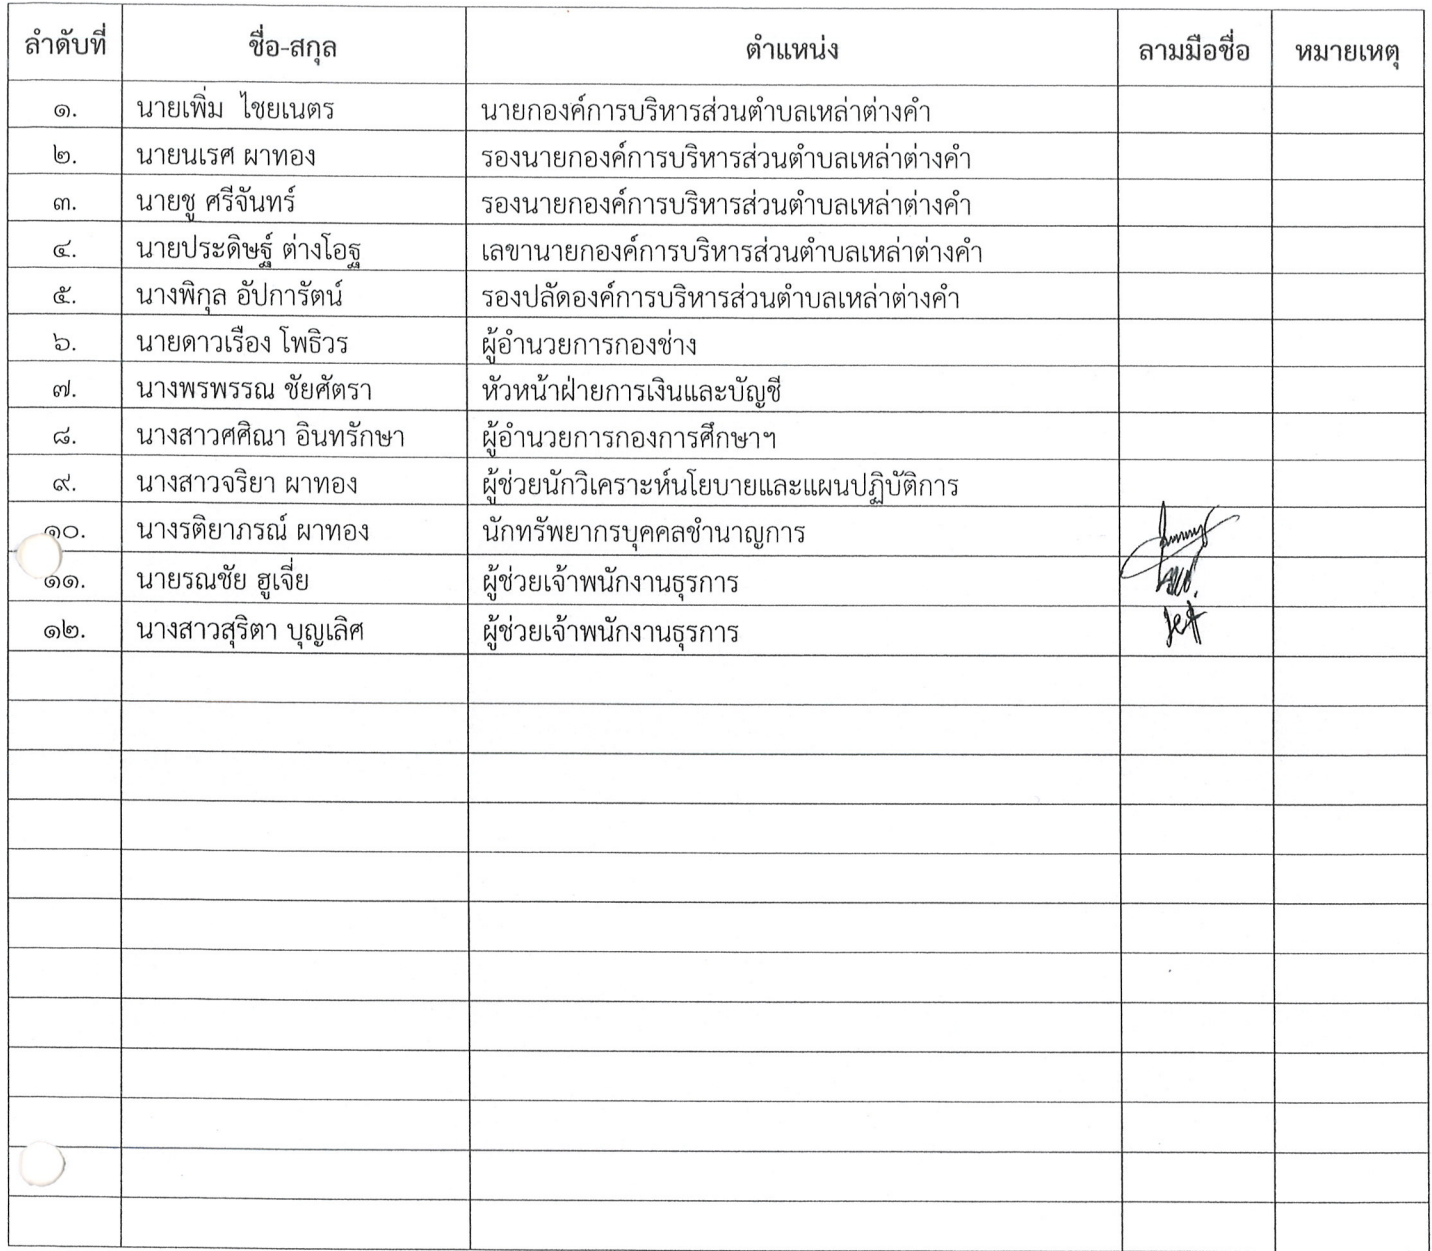 ลำดับที่ ชื่อ-สกุล ตำแหน่ง ลามมือชื่อ หมายเหตุ
๑. นายเพิ่ม ไชยเนตร นายกองค์การบริหารส่วนตำบลเหล่าต่างคำ
๒. นายนเรศ ผาทอง รองนายกองค์การบริหารส่วนตำบลเหล่าต่างคำ
๓. นายชู ศรีจันทร์ รองนายกองค์การบริหารส่วนตำบลเหล่าต่างคำ
๔. นายประดิษฐ์ ต่างโอฐ เลขานายกองค์การบริหารส่วนตำบลเหล่าต่างคำ
๕. นางพิกุล อัปการัตน์ รองปลัดองค์การบริหารส่วนตำบลเหล่าต่างคำ
๖. นายดาวเรือง โพธิวร ผู้อำนวยการกองช่าง
๗. นางพรพรรณ ชัยศัตรา หัวหน้าฝ่ายการเงินและบัญชี
๘. นางสาวศศิณา อินทรักษา ผู้อำนวยการกองการศึกษาฯ
๙. นางสาวจริยา ผาทอง ผู้ช่วยนักวิเคราะห์นโยบายและแผนปฏิบัติการ
๑๐. นางรติยาภรณ์ ผาทอง นักทรัพยากรบุคคลชำนาญการ
๑๑. นายรณชัย ฮูเจี่ย ผู้ช่วยเจ้าพนักงานธุรการ
๑๒. นางสาวสุริตา บุญเลิศ ผู้ช่วยเจ้าพนักงานธุรการ